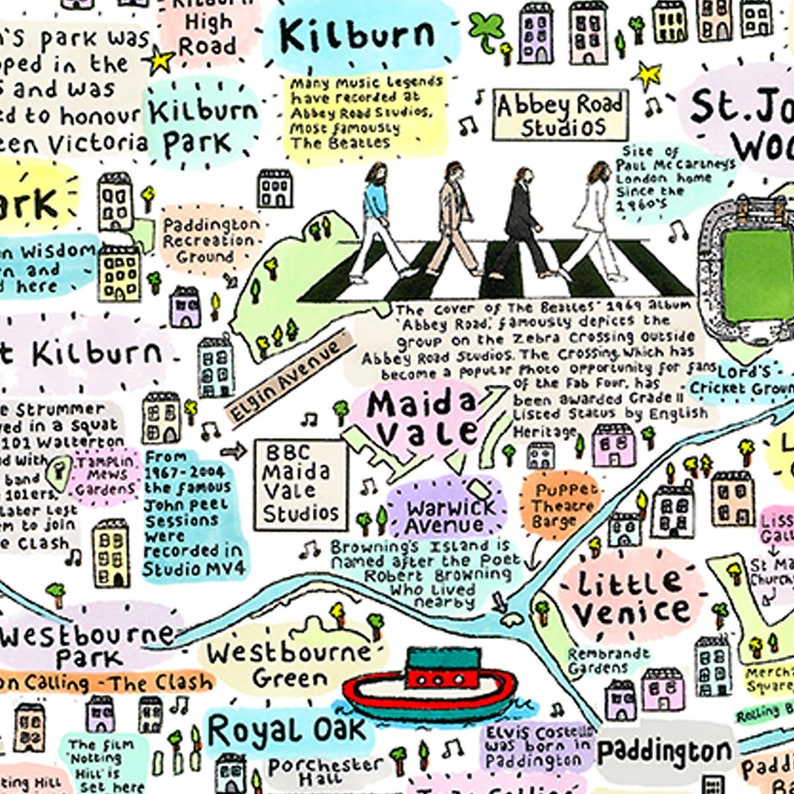 Kilburn
High
Road
Kilburn
's park was
ped in the
s and was
ed to honour
een Victoria
Kilburn
Park
Many Music Legends
have recorded at
Abbey Road Studios,
Most famously
The Beatles
Abbey Road
Studios
St.Jo
Woo
Site of
Paul McCartney's
London home
Since the
1960's
ark
Paddington
Recreation
Ground
n Wisdom
rn and
d here
The cover of The Beatles' 1969 album
'Abbey Road', famously depicts the
group on the Zebra Crossing outside
Abbey Road Studios. The Crossing, which has
become a popular photo opportunity for fans
of the Fab Four, has
been awarded Grade II
Listed Status by English
Heritage.
Lord's
Cricket Groun
t Kilburn
Elgin Avenue
Maida
Vale
e Strummer
ved in a squat
101 Walterton
d with
band
101ers,
later left
em to join
e Clash
Tamplin
Mews
Gardens
From
1967-2004
the famous
John Peel
Sessions
were
recorded in
Studio MV4
BBC
Maida
Vale
Studios
Warwick
Avenue
Puppet
Theatre
Barge
Browning's Island is
named after the Poet
Robert Browning
Who lived
nearby
Little
Venice
Liss
Gall
St Ma
Church
Rembrandt
Gardens
Westbourne
Park
on Calling - The Clash
Westbourne
Green
Merch
Square
Rolling B
Royal Oak
Elvis Costello
was born in
Paddington
Paddington
The film
'Notting
Hill' is
set here
Porchester
Hall
tting Hill
Padd
Ba